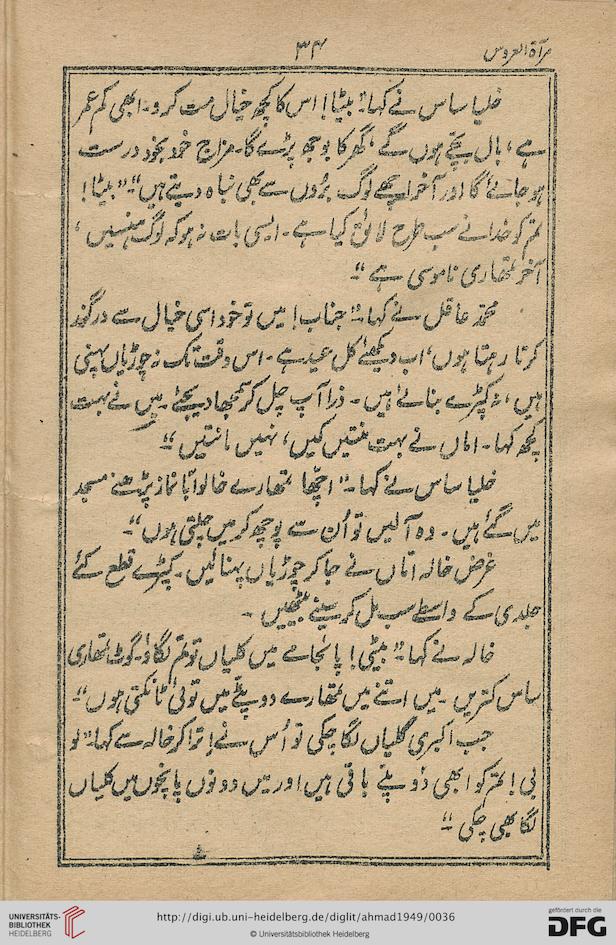 مرآۃ العروس
۳۴
خلیا ساس نے کہا۔" بیٹا! اس کا کچھ خیال مت کرو۔ ابھی کم عمر
ہے، بال بچے ہوں گے، گھر کا بوجھ پڑے گا۔ مزاج خود بخود درست
ہو جائے گا اور آخر اچھے لوگ بُروں سے بھی نباہ دیتے ہیں"۔ "بیٹا!
تم کو خدا نے سب طرح لائق کیا ہے۔ ایسی بات نہ ہو کہ لوگ ہنسیں،
آخر تمھاری ناموسی ہے"۔
محمد عاقل نے کہا۔" جناب! میں تو خود اسی خیال سے درگزر
کرتا رہتا ہوں، اب دیکھئے کل عید ہے۔ اس وقت تک نہ چوڑیاں پہنی
ہیں، نہ کپڑے بنائے ہیں۔ ذرا آپ چل کر سمجھا دیجئے۔ میں نے بہت
کچھ کہا۔ اماں نے بہت منتیں کیں، نہیں مانتیں"۔
خلیا ساس نے کہا۔" اچھا تمھارے خالو ابّا نماز پڑھنے مسجد
میں گئے ہیں۔ وہ آ لیں تو اُن سے پوچھ کر میں چلتی ہوں"۔
غرض خالہ اماں نے جا کر چوڑیاں پہنائیں۔ کپڑے قطع کئے
جلدی کے واسطے سب مل کر سینے بیٹھیں۔
خالہ نے کہا۔" بیٹی! پائجامے میں کلیاں تو تم لگاؤ۔ گوٹ تمھاری
ساس کتریں۔ میں اتنے میں تمھارے دوپٹے میں توئی ٹانکتی ہوں"۔
جب اکبری کلیاں لگا چکی تو اُس نے اِترا کر خالہ سے کہا۔" لو
بی! تم کو ابھی دو پلّے باقی ہیں اور میں دونوں پائچوں میں کلیاں
لگا بھی چکی"۔
UNIVERSITÄTS-
BIBLIOTHEK
HEIDELBERG
http://digi.ub.uni-heidelberg.de/diglit/ahmad1949/0036
© Universitätsbibliothek Heidelberg
gefördert durch die
DFG